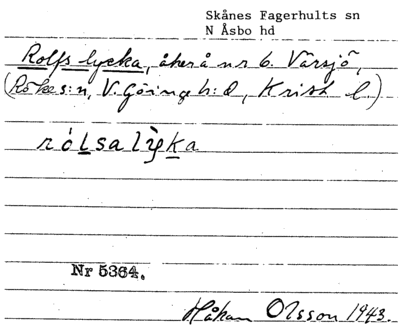 Skånes Fagerhults sn
N Åsbo hd
Rolfs lycka, åker å nr 6. Värsjö,
(Röke s:n, V. Göinge h:d, Krist. l.)
rólsalỳka
Nr 5364.
Håkan Olsson 1943.